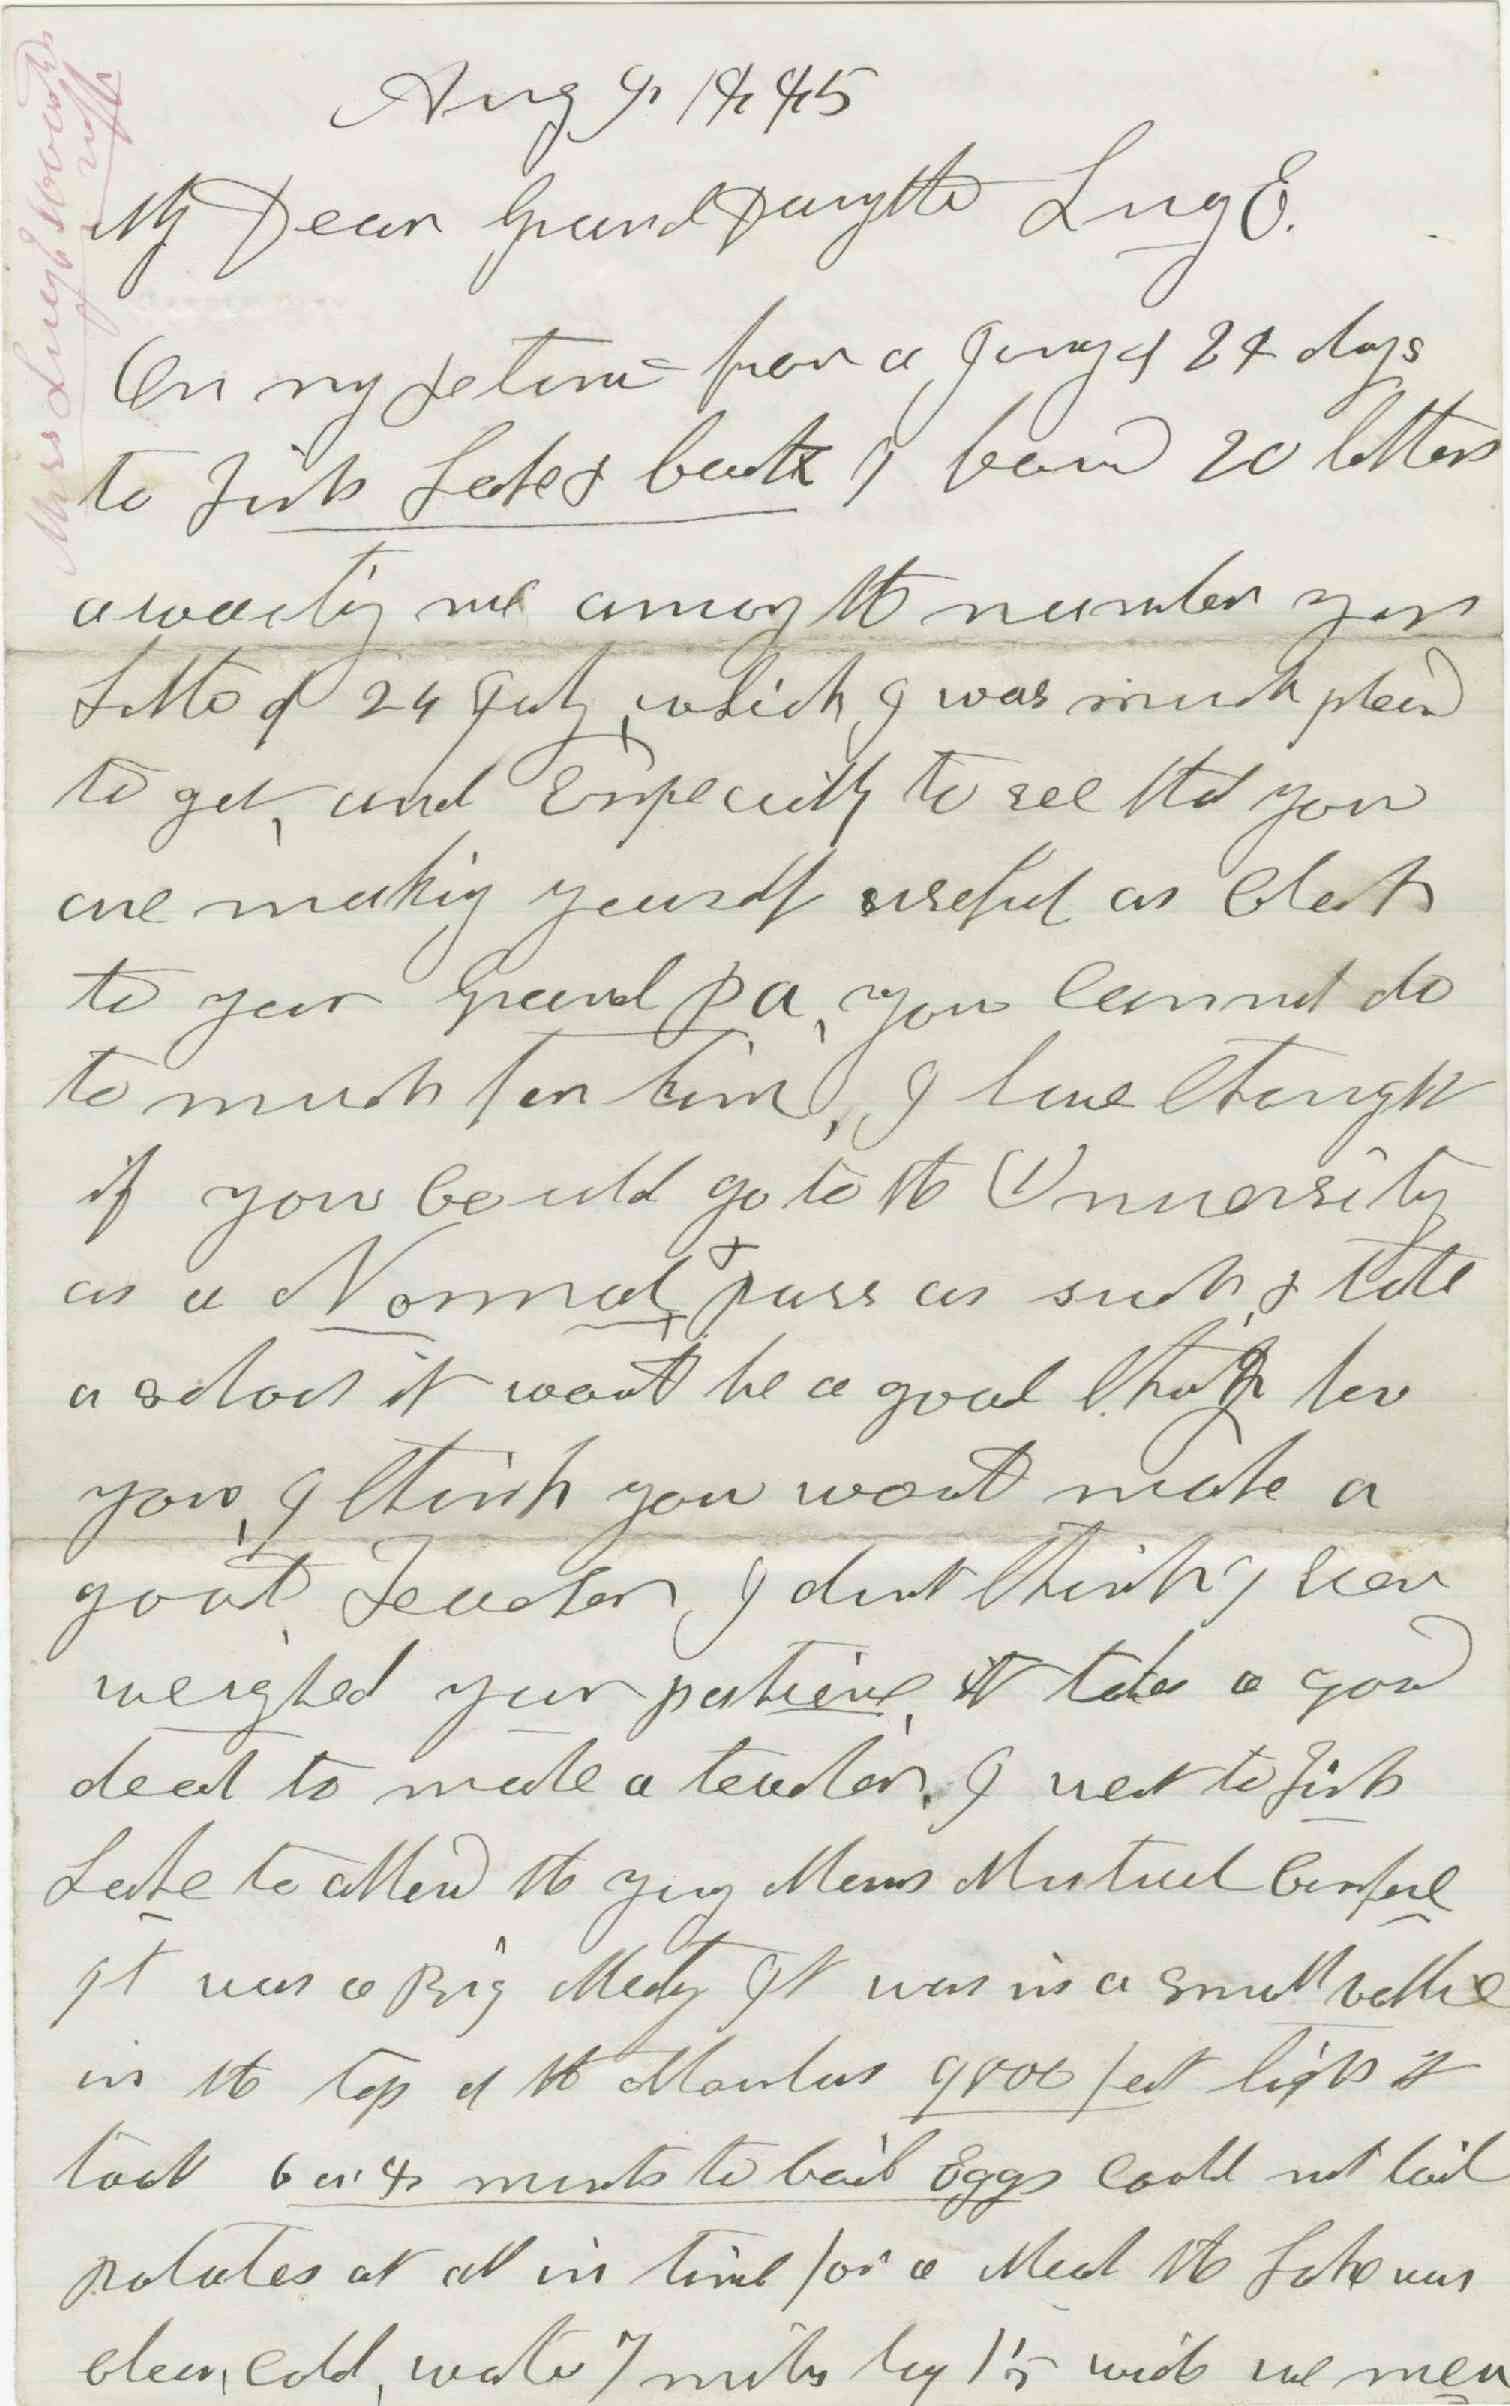 Miss Lucy E Woodruff
Aug 9, 1885
My Dear Grand Daughter Lucy E.
On my return from a Jouney of days
to Fish Lake & back I found 20 letters
awaiting me among the number your
Letter of 24 July, which I was much pleased
to get, and Especially to see that you
are making yourself useful as Clerk
to your Grand Pa, you Cannot do
to much for him, I have thought
if you Could go to the University
as a Normal, & pass as such, & take
a school it would be a good thing for
you, I think you would make a
good Teacher, I dont think I ever
weighed your patience, it takes a good
deal to make a teacher. I went to Fish
Lake to attend the yung Mens Mutual Conference
It was a Big Meeting It was in a small vallie
in the top of the Mountains 9800 feet high it
took 6 or 8 minuts to boil Eggs Could not boil
potatoes at all in time for a Meal the Lake was
clear, Cold, water 7 miles long 1½ wide we men